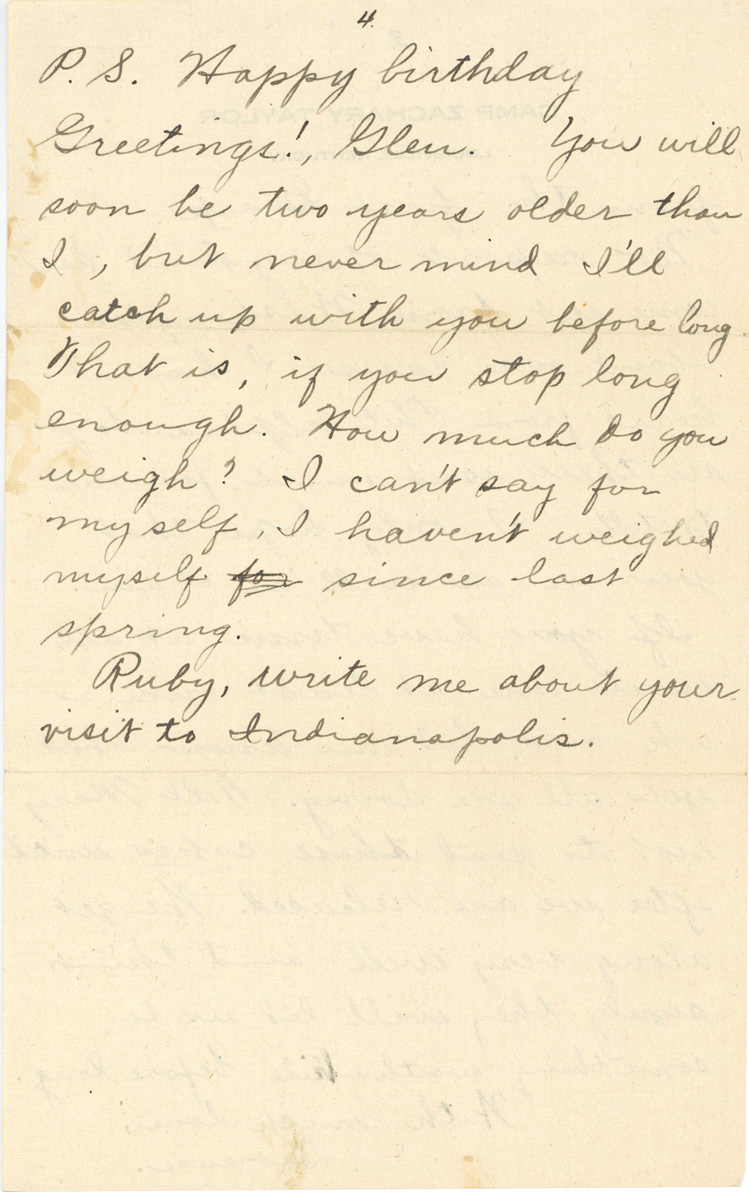 4.
P. S. Happy birthday
Greetings!, Glen. You will
soon be two years older than
I, but never mind I'll
catch up with you before long.
That is, if you stop long
enough. How much do you
weigh? I can't say for
myself, I haven't weighed
myself for since last
spring.
Ruby, write me about your
visit to Indianapolis.